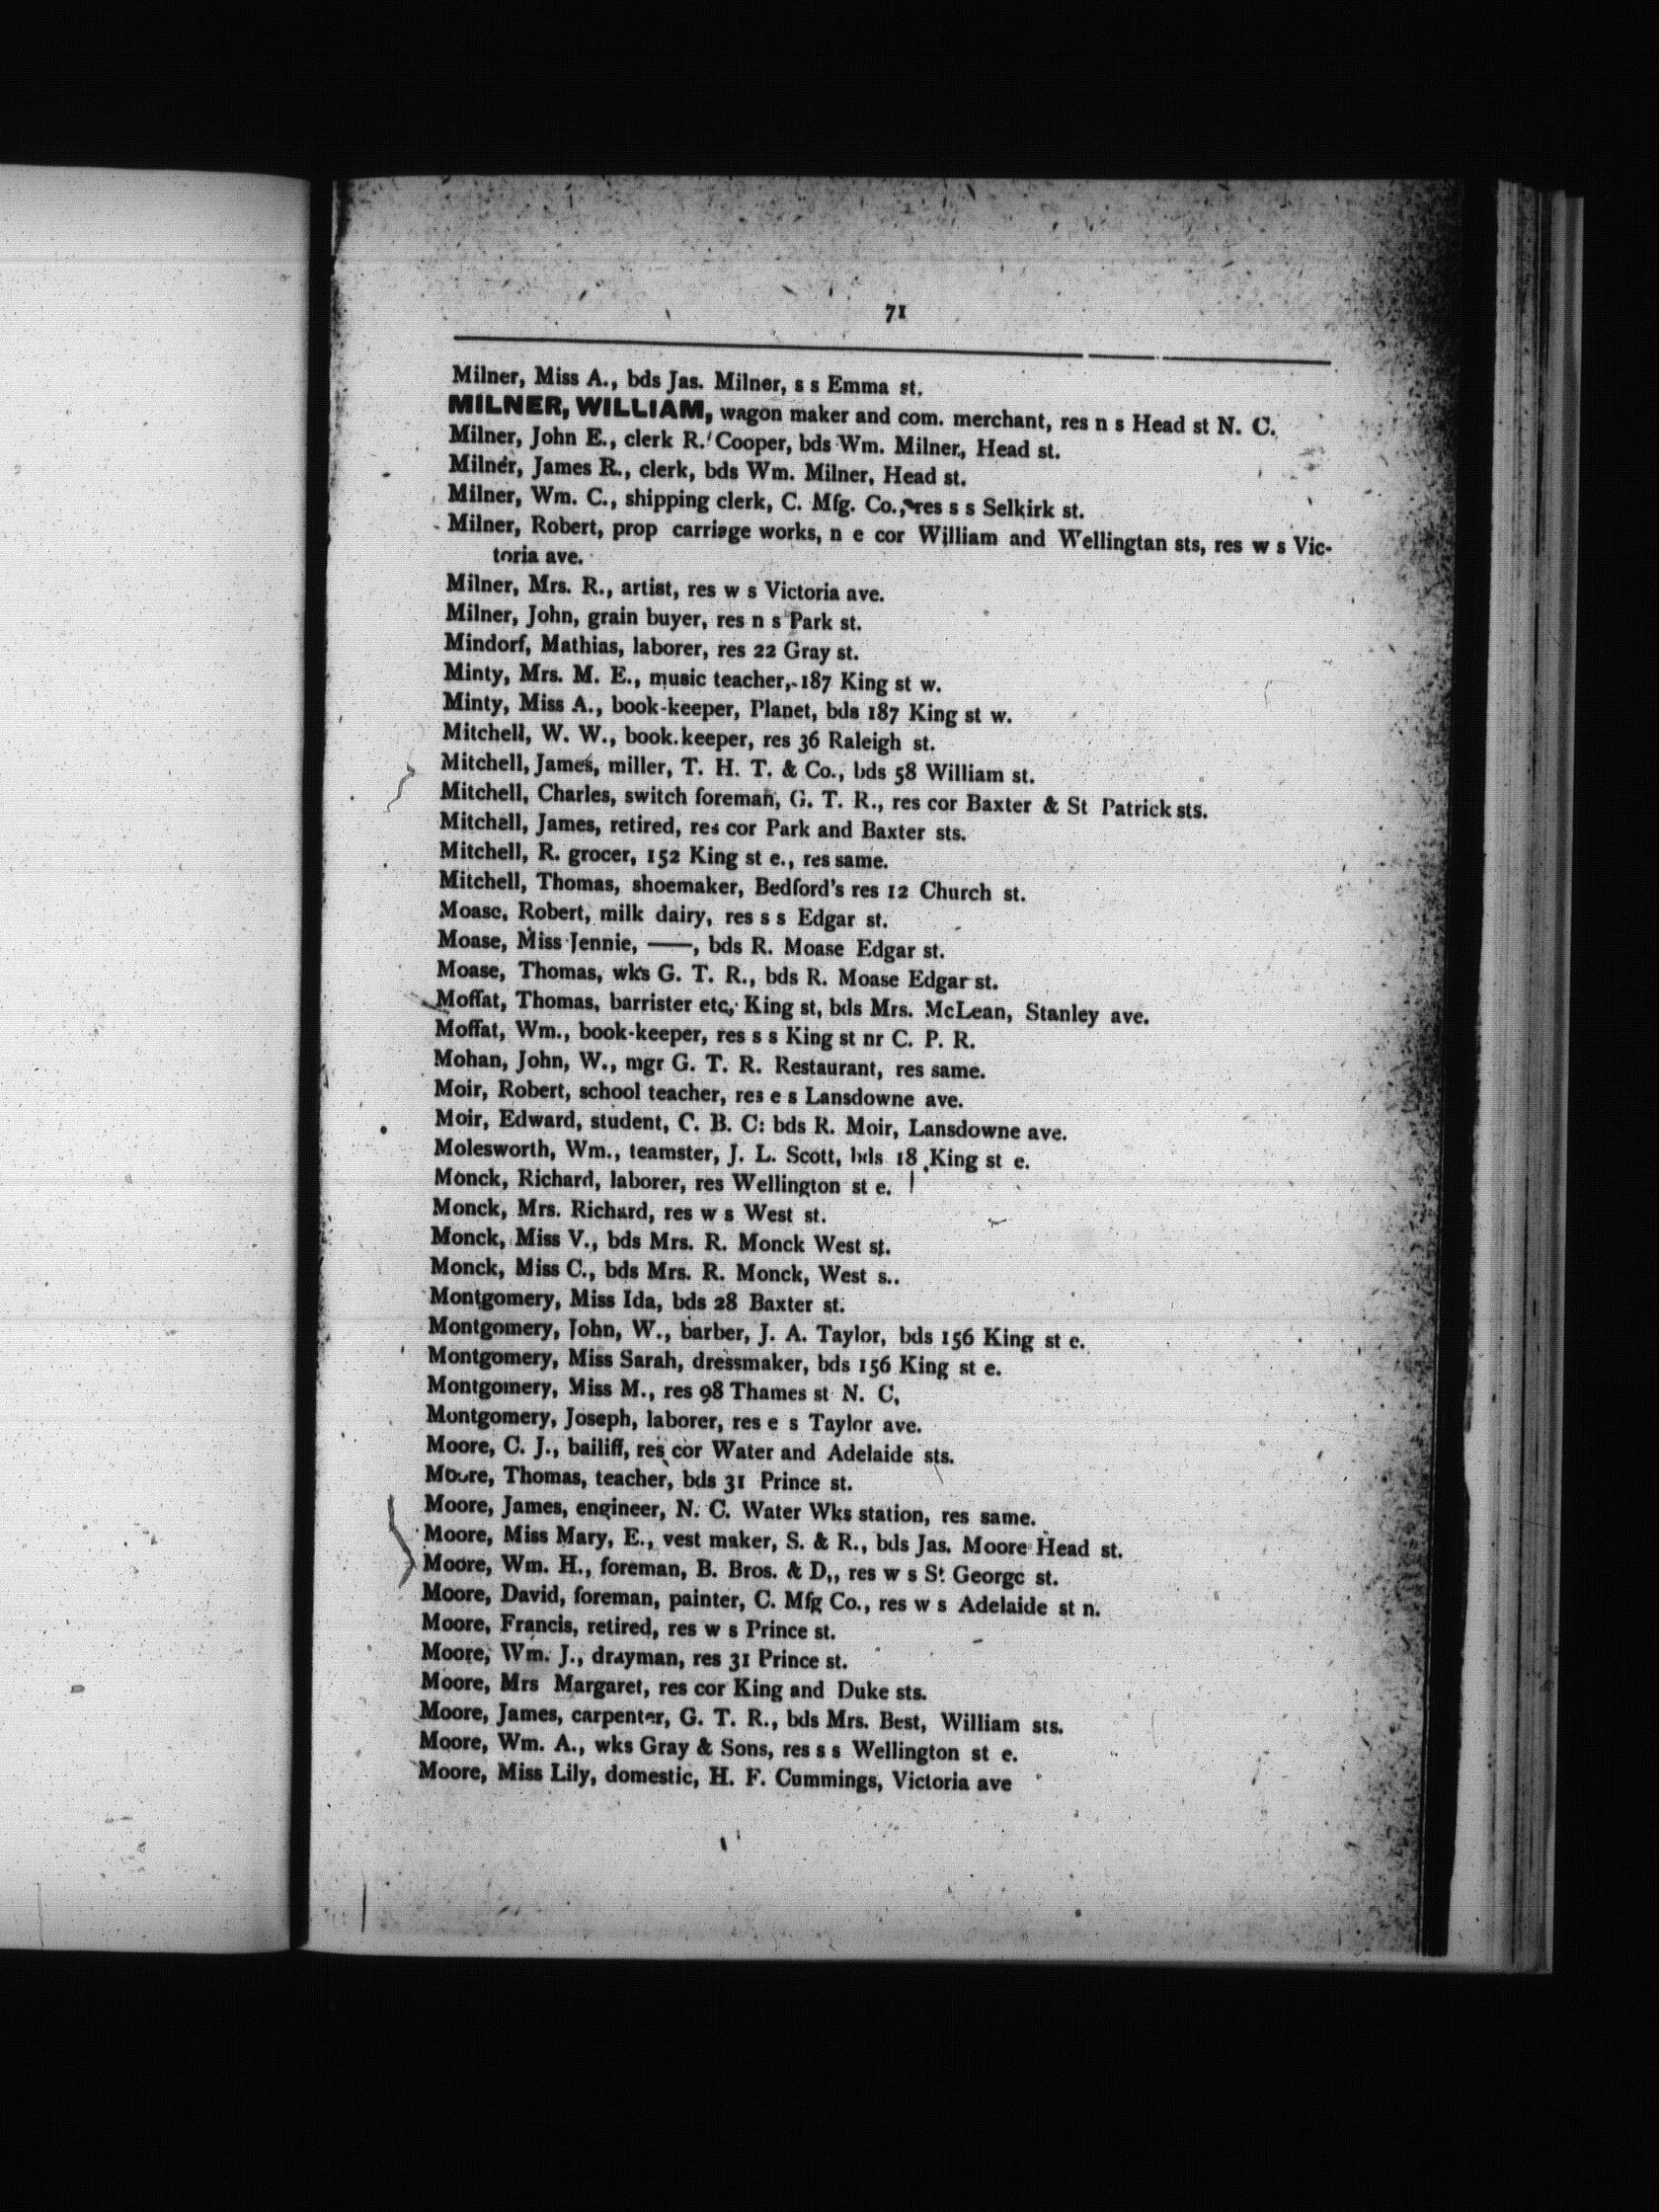 71
Milner, Miss A., bds Jas. Milner, s s Emma st.
MILNER, WILLIAM, wagon maker and com. merchant, res n s Head st N. C.
Milner, John E., clerk R. Cooper, bds Wm. Milner, Head st.
Milner, James R., clerk, bds Wm. Milner, Head st.
Milner, Wm. C., shipping clerk, C. Mfg. Co., res s s Selkirk st.
Milner, Robert, prop carriage works, n e cor William and Wellingtan sts, res w s Vic-
toria ave.
Milner, Mrs. R., artist, res w s Victoria ave.
Milner, John, grain buyer, res n s Park st.
Mindorf, Mathias, laborer, res 22 Gray st.
Minty, Mrs. M. E., music teacher, 187 King st w.
Minty, Miss A., book-keeper, Planet, bds 187 King st w.
Mitchell, W. W., book.keeper, res 36 Raleigh st.
Mitchell, James, miller, T. H. T. & Co., bds 58 William st.
Mitchell, Charles, switch foreman, G. T. R., res cor Baxter & St Patrick sts.
Mitchell, James, retired, res cor Park and Baxter sts.
Mitchell, R. grocer, 152 King st e., res same.
Mitchell, Thomas, shoemaker, Bedford's res 12 Church st.
Moase, Robert, milk dairy, res s s Edgar st.
Moase, Miss Jennie, ——, bds R. Moase Edgar st.
Moase, Thomas, wks G. T. R., bds R. Moase Edgar st.
Moffat, Thomas, barrister etc, King st, bds Mrs. McLean, Stanley ave.
Moffat, Wm., book-keeper, res s s King st nr C. P. R.
Mohan, John, W., mgr G. T. R. Restaurant, res same.
Moir, Robert, school teacher, res e s Lansdowne ave.
Moir, Edward, student, C. B. C: bds R. Moir, Lansdowne ave.
Molesworth, Wm., teamster, J. L. Scott, bds 18 King st e.
Monck, Richard, laborer, res Wellington st e.
Monck, Mrs. Richard, res w s West st.
Monck, Miss V., bds Mrs. R. Monck West st.
Monck, Miss C., bds Mrs. R. Monck, West s..
Montgomery, Miss Ida, bds 28 Baxter st.
Montgomery, John, W., barber, J. A. Taylor, bds 156 King st e.
Montgomery, Miss Sarah, dressmaker, bds 156 King st e.
Montgomery, Miss M., res 98 Thames st N. C,
Montgomery, Joseph, laborer, res e s Taylor ave.
Moore, C. J., bailiff, res cor Water and Adelaide sts.
Moore, Thomas, teacher, bds 31 Prince st.
Moore, James, engineer, N. C. Water Wks station, res same.
Moore, Miss Mary, E., vest maker, S. & R., bds Jas. Moore Head st.
Moore, Wm. H., foreman, B. Bros. & D,, res w s St George st.
Moore, David, foreman, painter, C. Mfg Co., res w s Adelaide st n.
Moore, Francis, retired, res w s Prince st.
Moore, Wm. J., drayman, res 31 Prince st.
Moore, Mrs Margaret, res cor King and Duke sts.
Moore, James, carpenter, G. T. R., bds Mrs. Best, William sts.
Moore, Wm. A., wks Gray & Sons, res s s Wellington st e.
Moore, Miss Lily, domestic, H. F. Cummings, Victoria ave